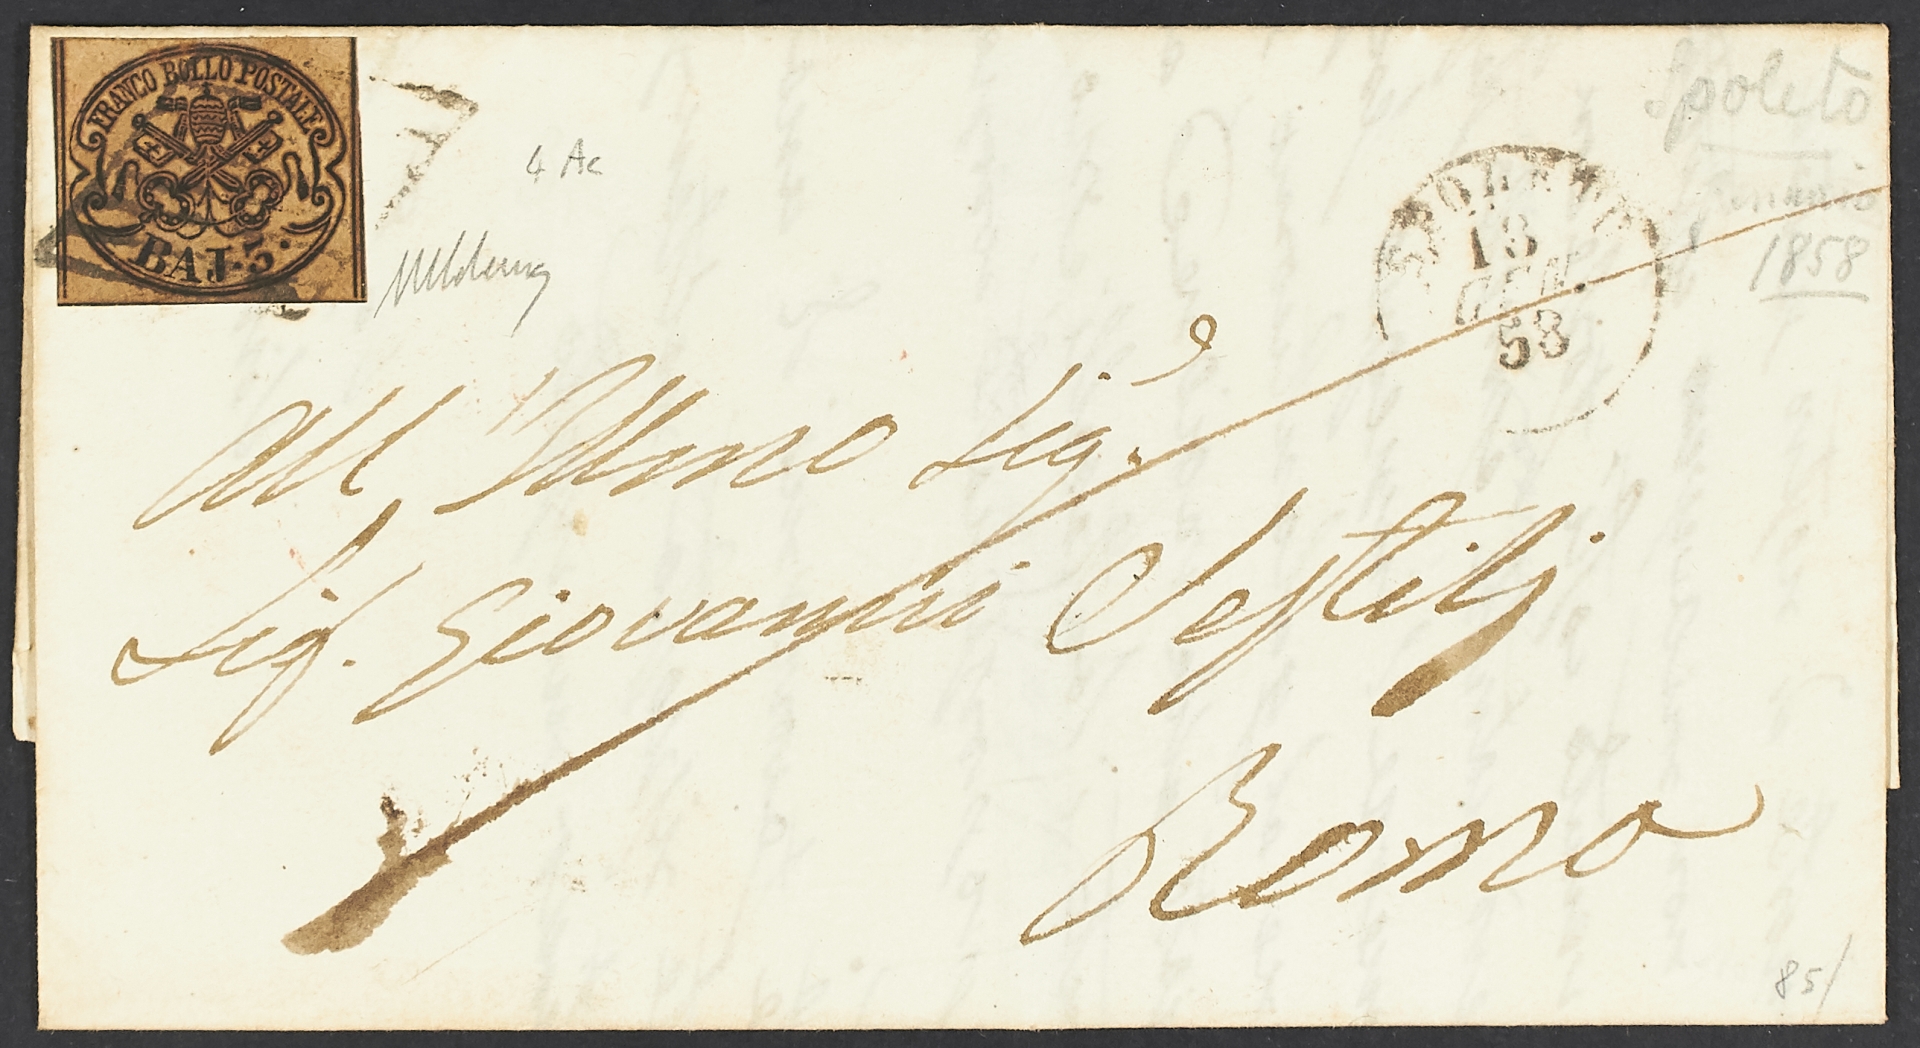 FRANCO BOLLO POSTALE
BAJ. 3.
4 Ac
Spoleto
Gennaio
1858
SPOLETO
13
GEN.
58
All' Illmo Sig.e
Sig. Giovanni Sestilj
Roma
85/